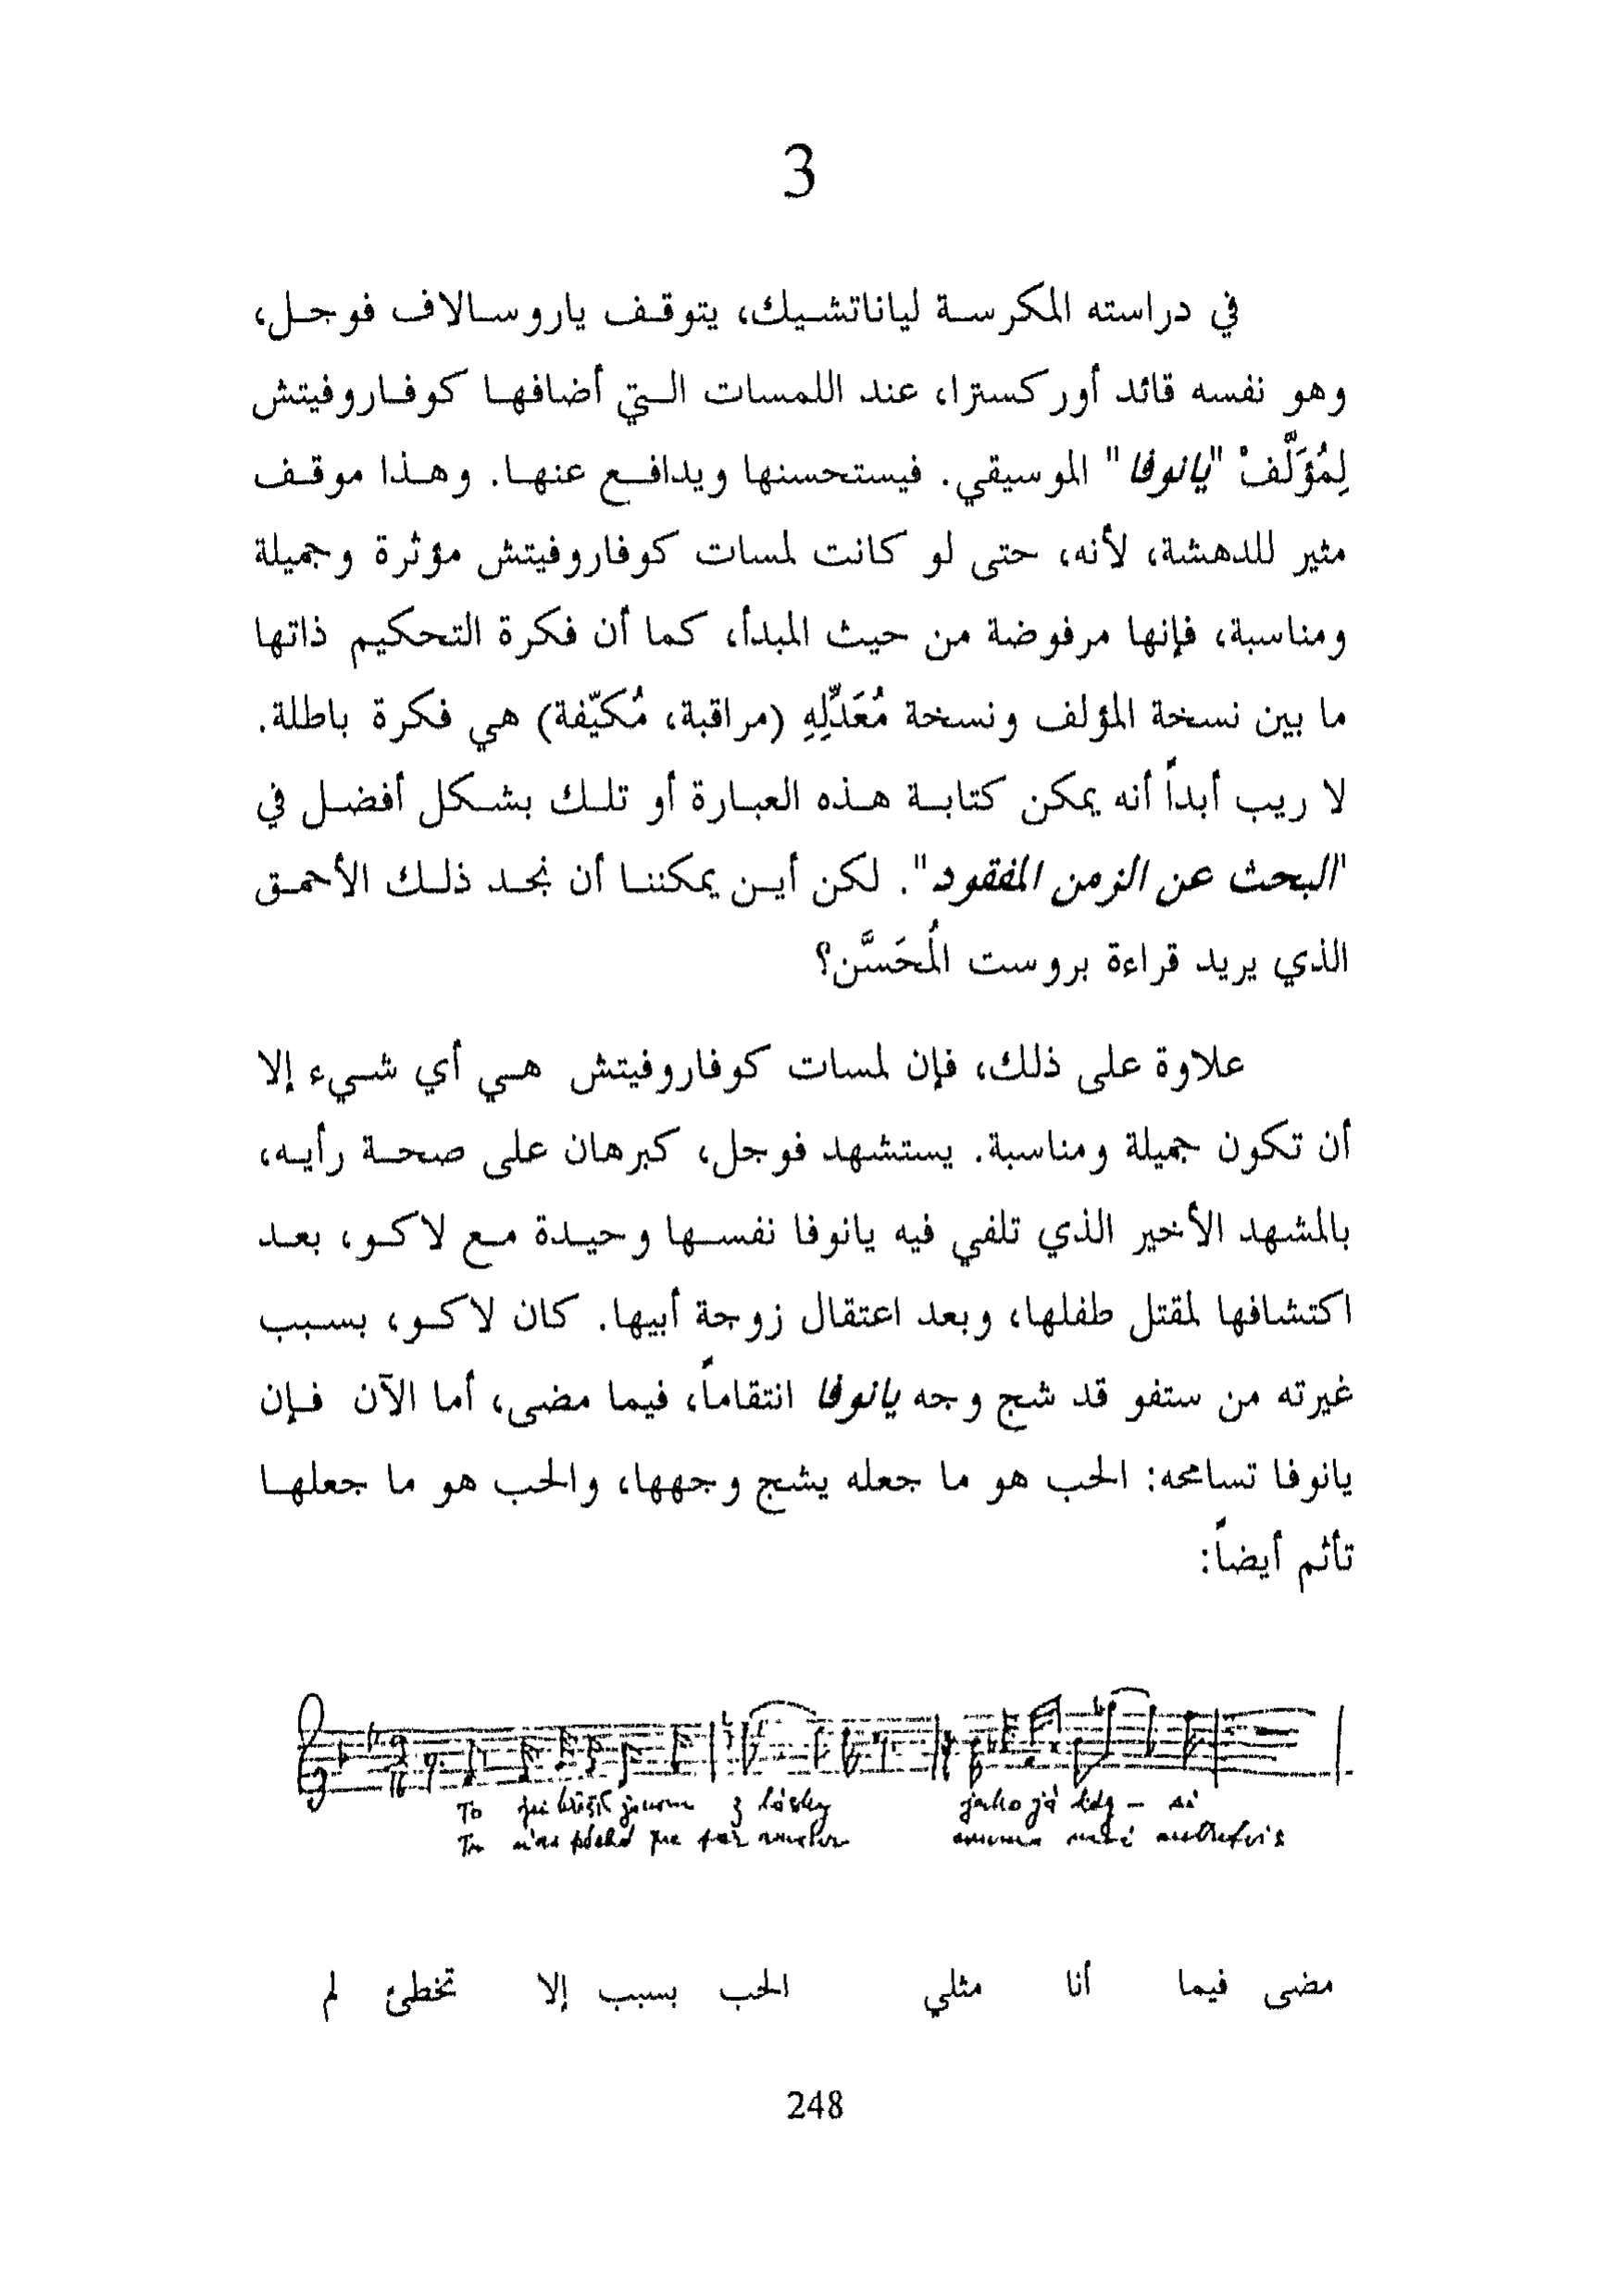 3
في دراسته المكرسة لياناتشيك، يتوقف ياروسالاف فوجل،
وهو نفسه قائد أوركسترا، عند اللمسات التي أضافها كوفاروفيتش
لِمُؤَلَّفْ "يانوفا" الموسيقي. فيستحسنها ويدافع عنها. وهذا موقف
مثير للدهشة، لأنه، حتى لو كانت لمسات كوفاروفيتش مؤثرة وجميلة
ومناسبة، فإنها مرفوضة من حيث المبدأ، كما أن فكرة التحكيم ذاتها
ما بين نسخة المؤلف ونسخة مُعَدِّلِهِ (مراقبة، مُكيّفة) هي فكرة باطلة.
لا ريب أبداً أنه يمكن كتابة هذه العبارة أو تلك بشكل أفضل في
"البحث عن الزمن المفقود". لكن أين يمكننا أن نجد ذلك الأحمق
الذي يريد قراءة بروست المُحَسَّن؟
علاوة على ذلك، فإن لمسات كوفاروفيتش هي أي شيء إلا
أن تكون جميلة ومناسبة. يستشهد فوجل، كبرهان على صحة رأيه،
بالمشهد الأخير الذي تلفي فيه يانوفا نفسها وحيدة مع لاكو، بعد
اكتشافها لمقتل طفلها، وبعد اعتقال زوجة أبيها. كان لاكو، بسبب
غيرته من ستفو قد شج وجه يانوفا انتقاماً، فيما مضى، أما الآن فإن
يانوفا تسامحه: الحب هو ما جعله يشج وجهها، والحب هو ما جعلها
تأثم أيضاً:
To z lásky jako já kdy - si
Tu
مضى فيما أنا مثلي الحب بسبب إلا تخطئ لم
248